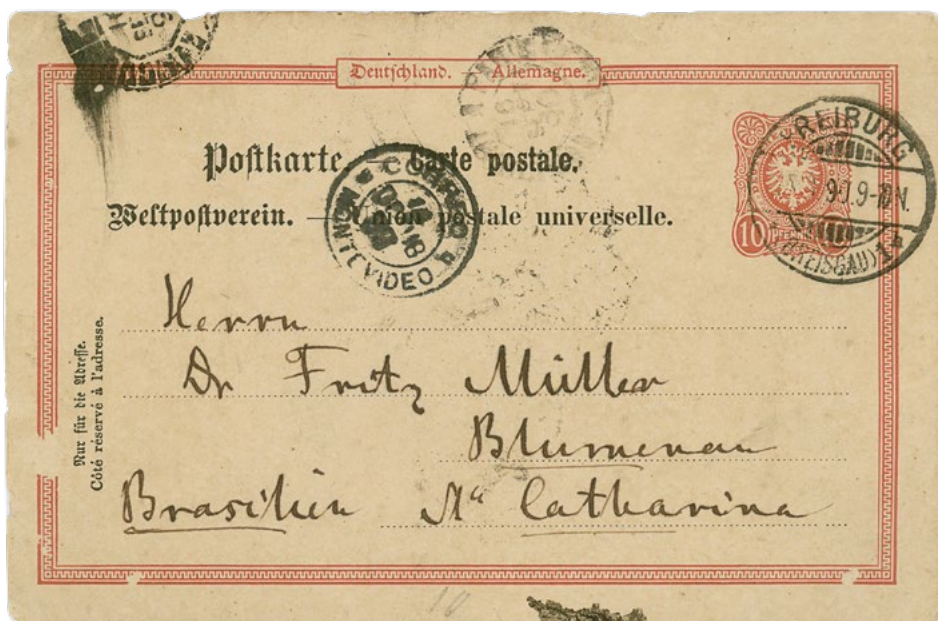 Deutschland. Allemagne.
Postkarte. — Carte postale.
Weltpostverein. — Union postale universelle.
10 PFENNIG 10
FREIBURG
9-10N.
(BREISGAU) 1
CORREO
MONTEVIDEO
Nur für die Adresse.
Côté réservé à l'adresse.
Herrn
Dr Fritz Müller
Blumenau
Brasilien Sta Catharina